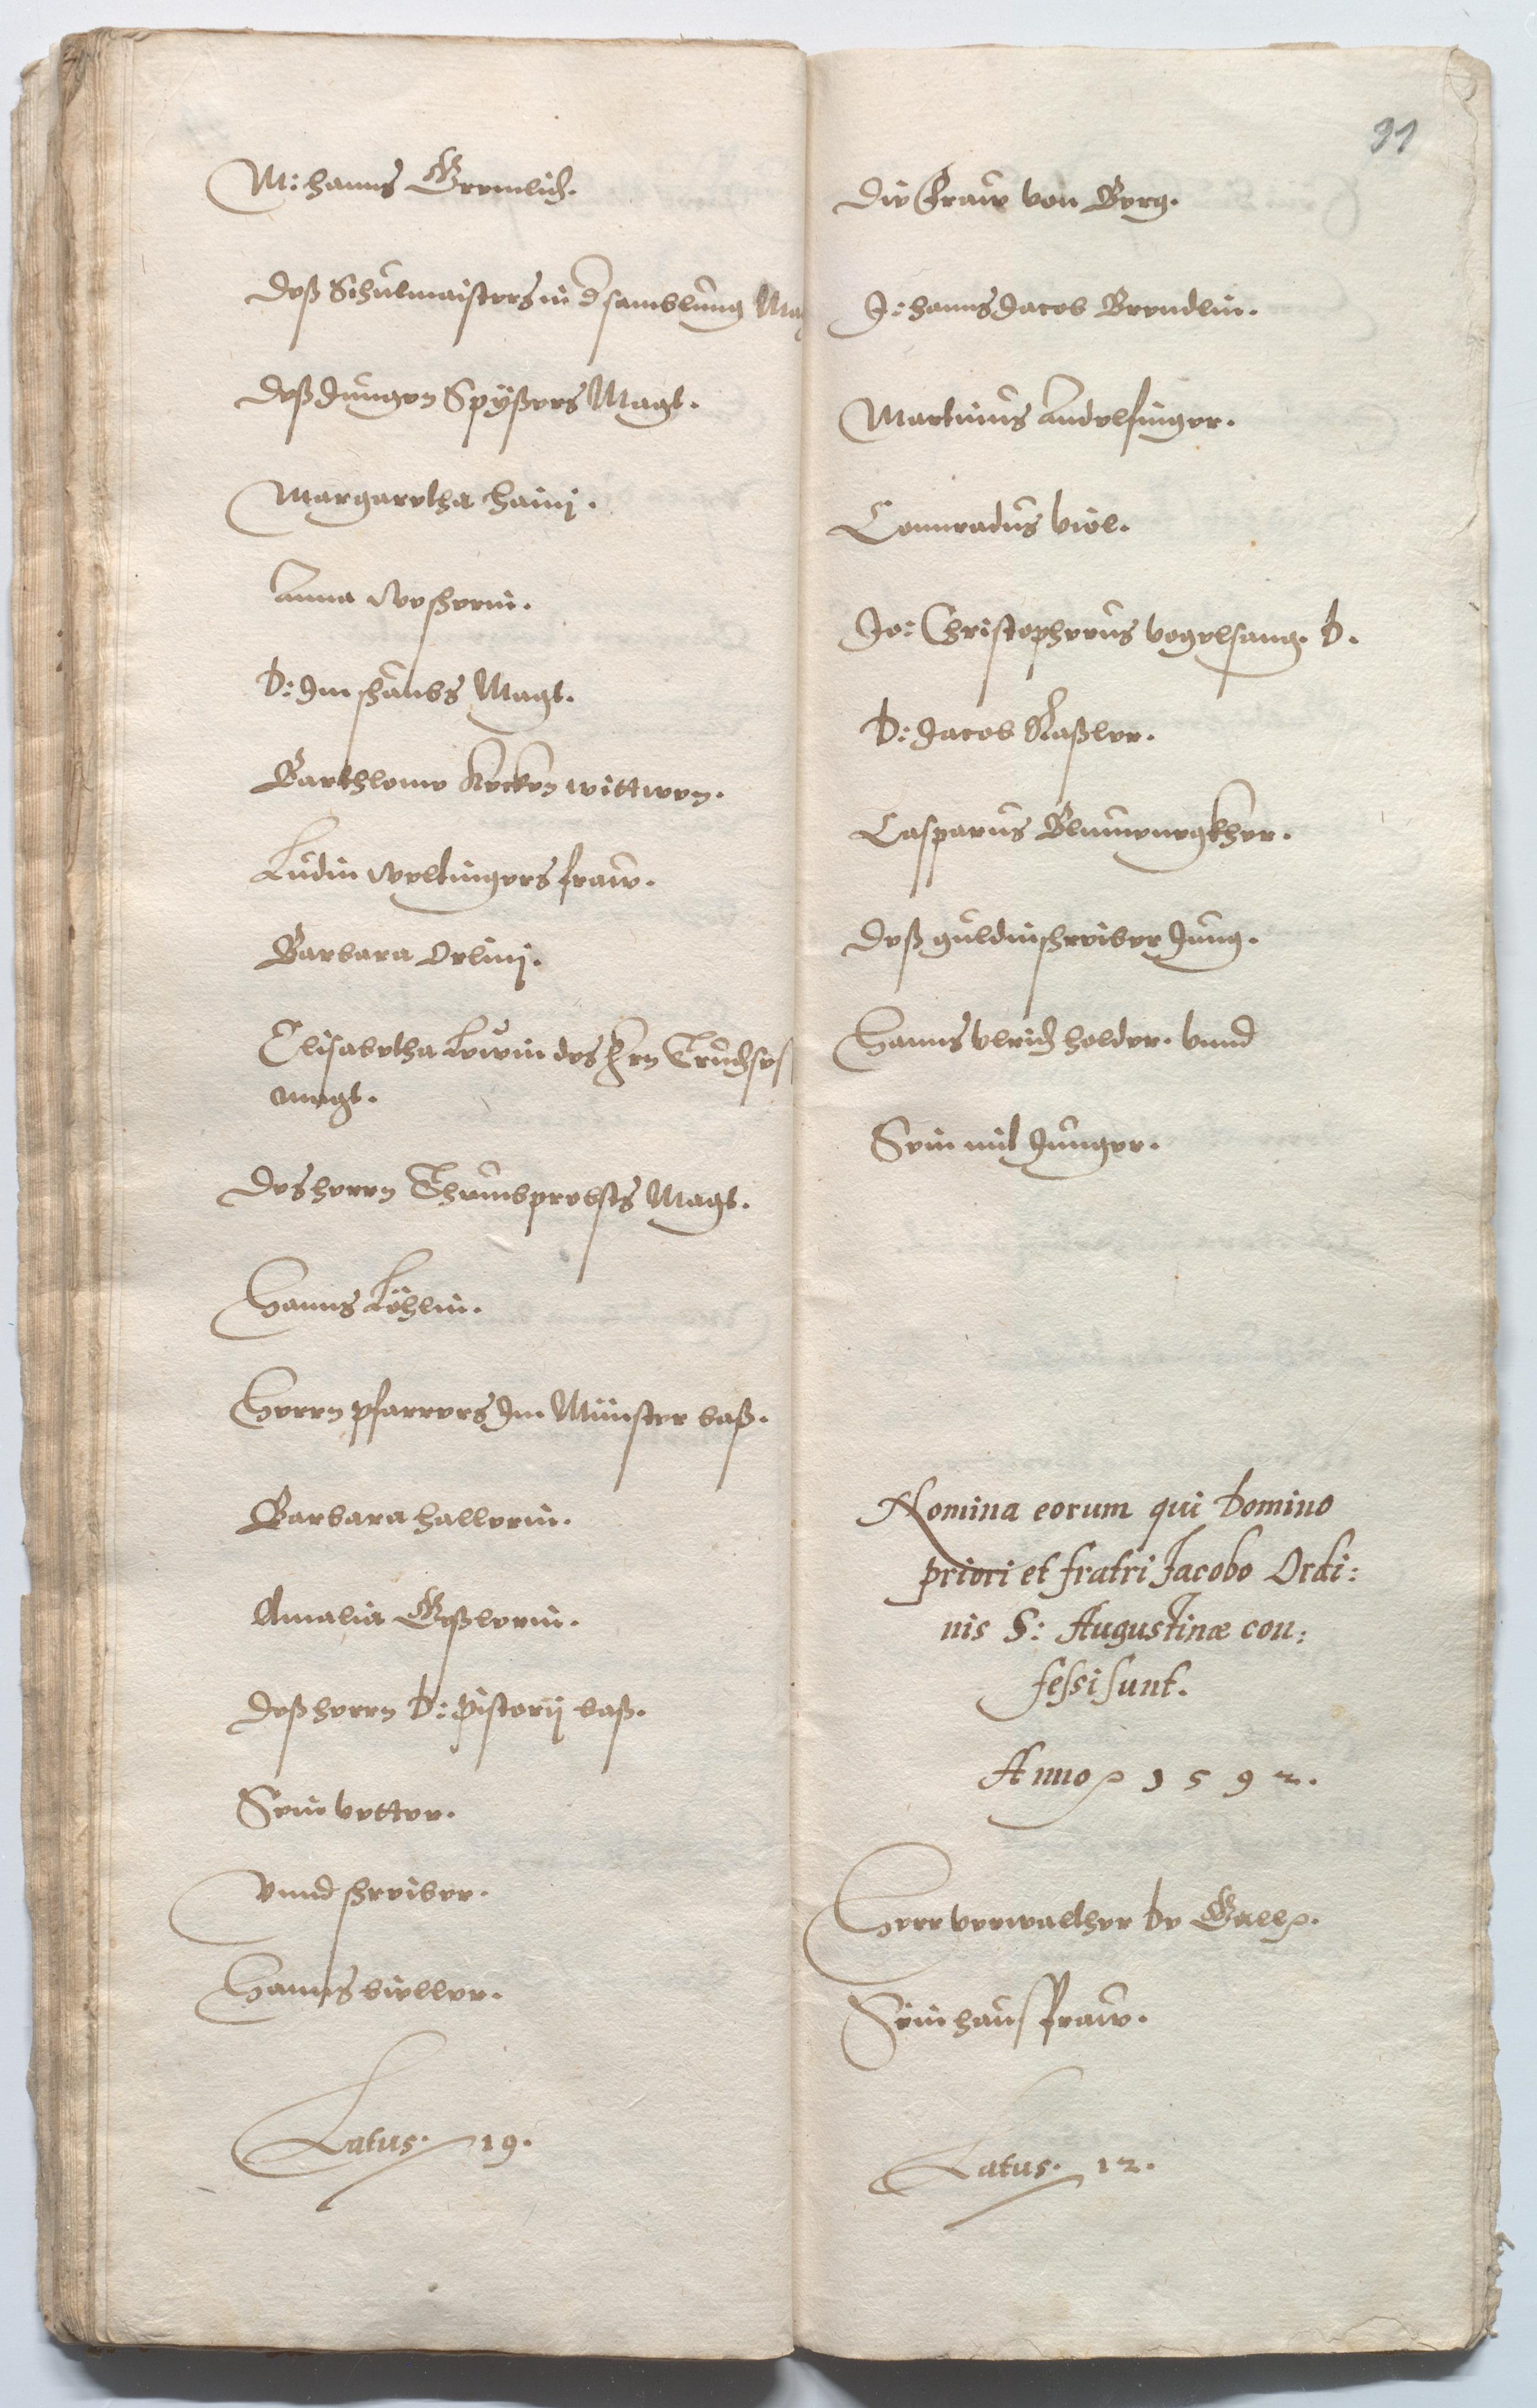 M: Hanns Gremlich.
Deß Schulmaisters in d' samblung Mag
Deß Jungen Spyßers Magt.
Margaretha Haini.
Anna Wescherin.
D: Im schaubs Magt.
Barthlome Kecken wittwen.
Ludin Weltingers fraw.
Barbara Orlini.
Elisabetha Lewin des Hrn Truchses
magt.
Des herrn Thumbprobsts Magt.
Hanns Löhlin.
Herrn pfarrers Im Münster baß.
Barbara Hallerin.
Amalia Geßlerin.
Deß herrn D: Pistorij baß.
Sein vetter.
Vnnd schreiber.
Hanns bieller.
Latus. 19.
91
Die Fraw von Berg.
J: Hanns Jacob Brendlin.
Martinus Andelfinger.
Connradus Viol.
Jo: Christopherus Vogelsang. D.
D: Jacob Raßler.
Casparus Blumenegkher.
Deß guldinschreiber Jung.
Hanns Ulrich Holder. vnnd
Sein mit Junger.
Nomina eorum qui Domino
priori et fratri Jacobo Ordi:
nis S: Augustinæ con:
fessi sunt.
Anno 1592.
Herr verwalther De Gall.
Sein hausfraw.
Latus. 12.